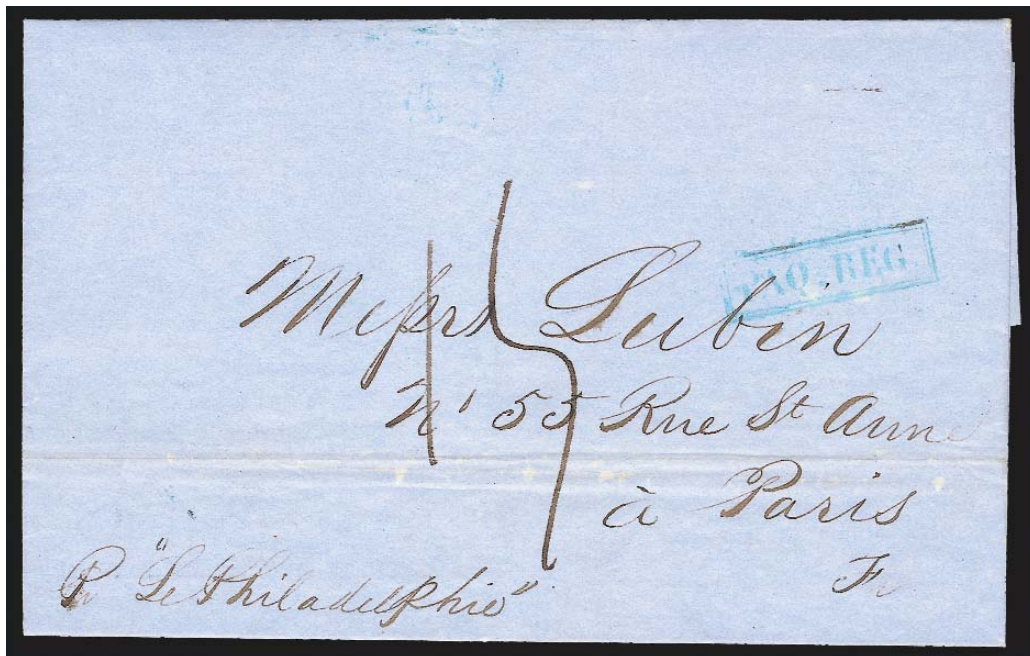 PAQ. REG.
Messrs Lubin
N° 55 Rue St Anne
à Paris
Pr "Le Philadelphie"